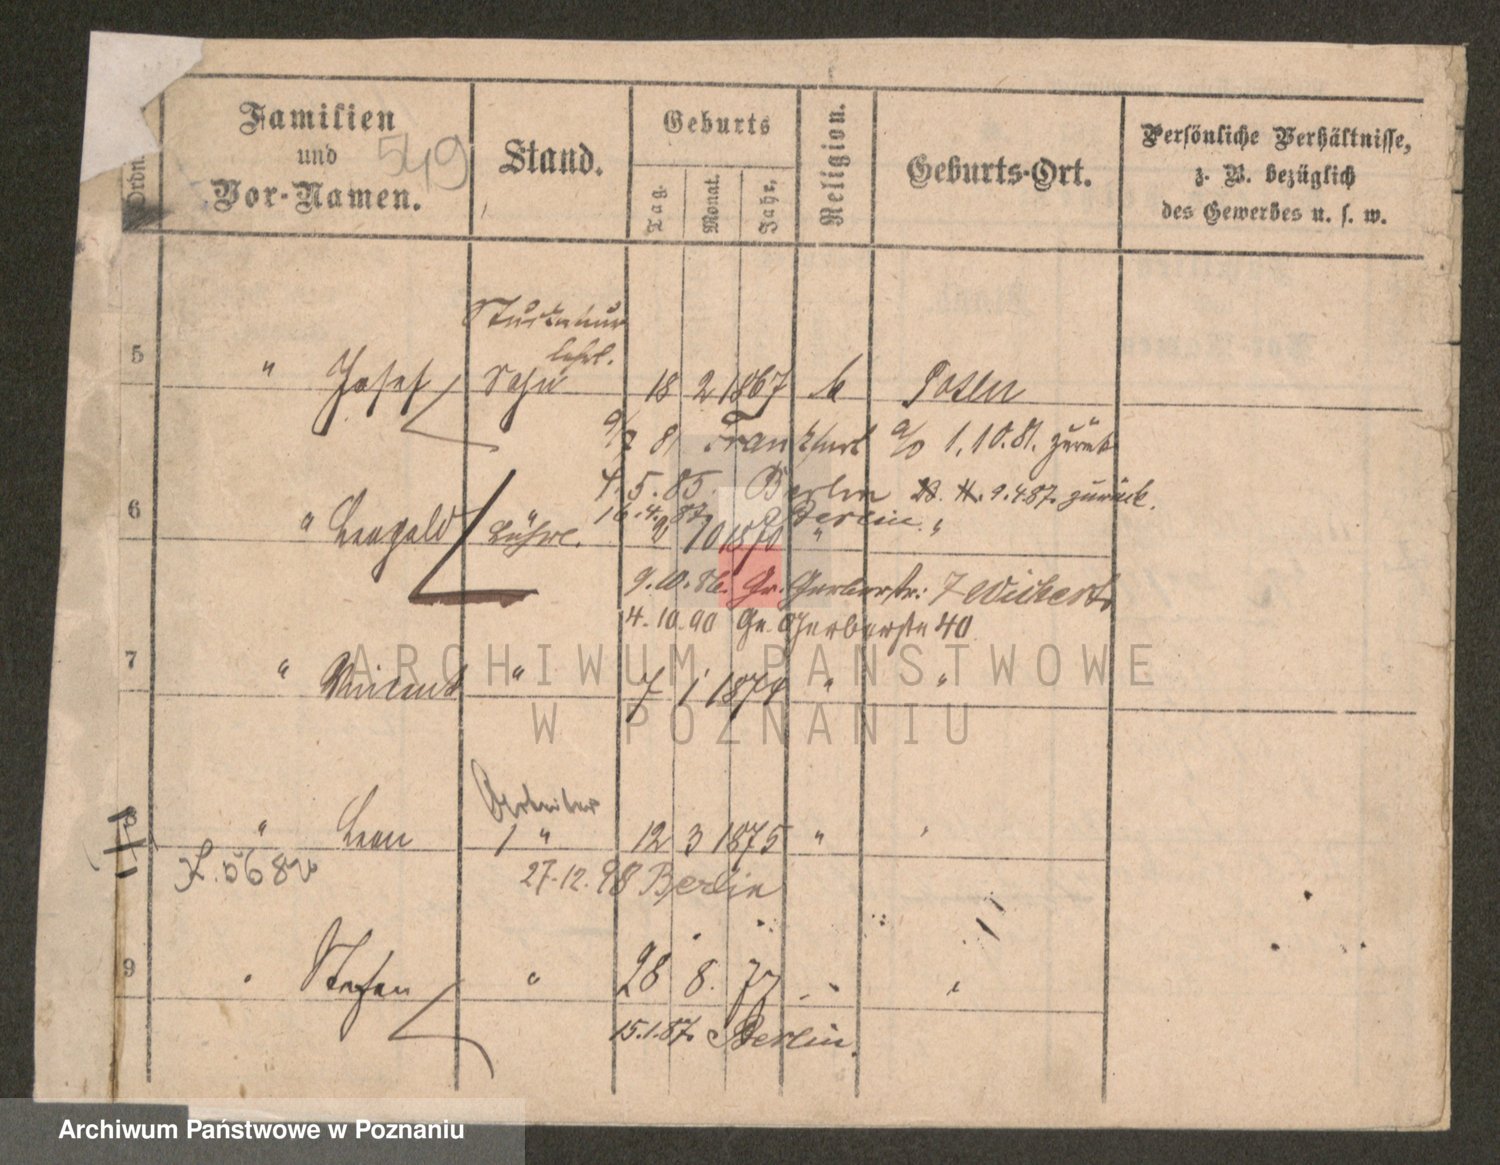 Ordn.
Familien
und
Vor-Namen.
549
Stand.
Geburts
Tag.
Monat.
Jahr.
Religion.
Geburts-Ort.
Persönliche Verhältnisse,
z. B. bezüglich
des Gewerbes u. s. w.
lehrl.
5 " Josef Sohn 18 2 1867 k Posen
81 Frankfurt a/O 1.10.81. zurück
4.5.85. Berlin 9.4.87. zurück.
16.4.87 Berlin
6 " Leopold 10 1870 " "
9.10.86. Gr. Gerberstr. 7
14.10.90 Gr. Gerberstr 40
7 " Vincent " 7 1 1874 " "
Arbeiter
8 " Leon " 12 3 1875 "
27.12.98 Berlin
9 " Stefan " 28 8. 77 " "
15.1.87. Berlin.
ARCHIWUM PAŃSTWOWE
W POZNANIU
Archiwum Państwowe w Poznaniu